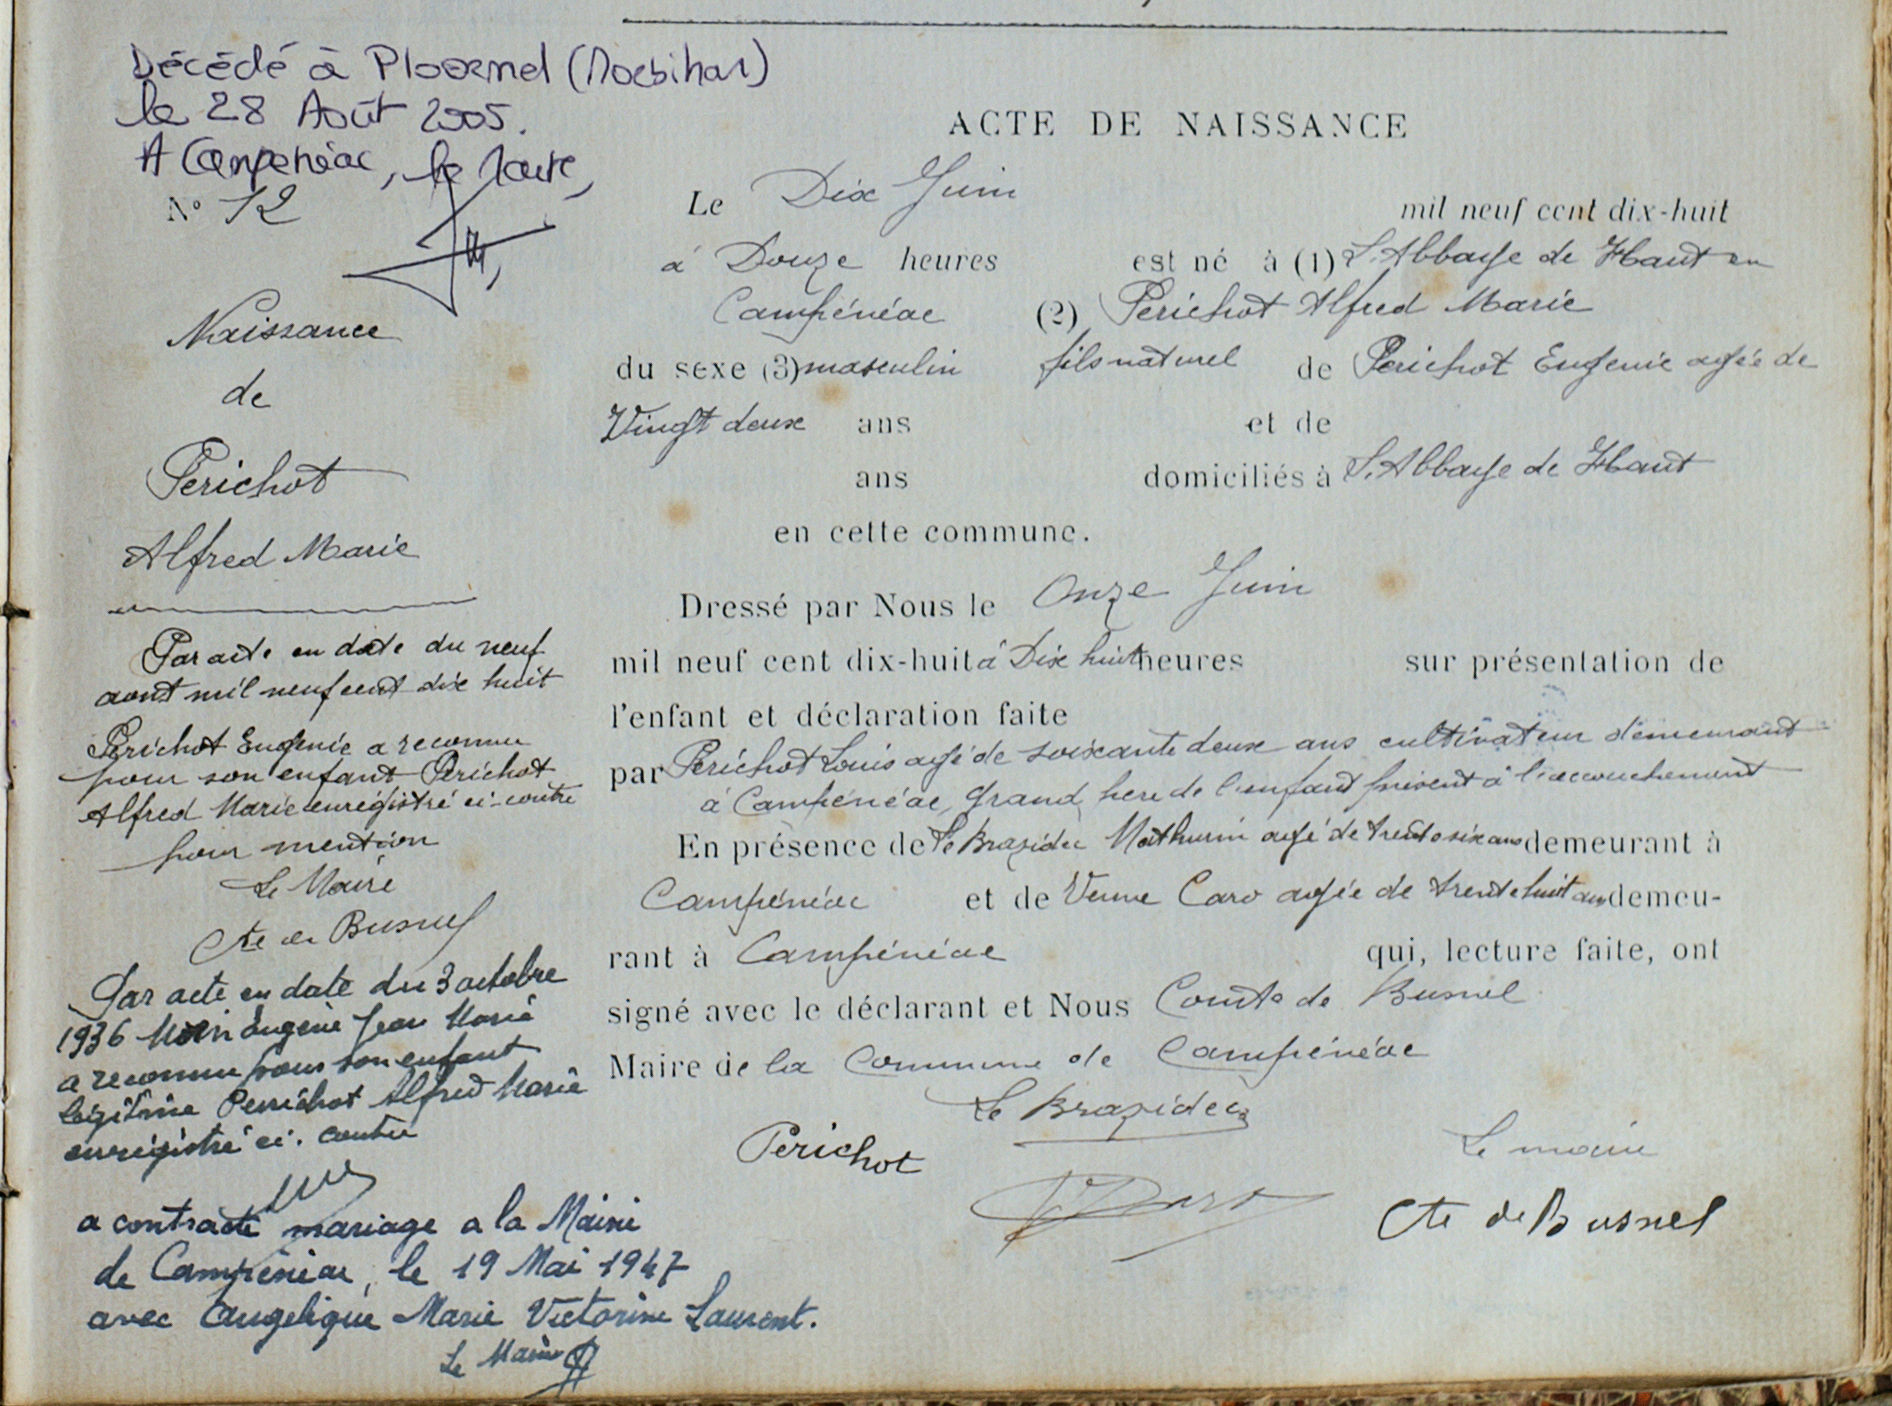 Décédé à Ploërmel (Morbihan)
le 28 Août 2005.
A Campénéac, le Maire,
N° 12
Naissance
de
Perichot
Alfred Marie
Par acte en date du neuf
aout mil neuf cent dix huit
Perichot Eugenie a reconnu
pour son enfant Perichot
Alfred Marie enregistré ci-contre
pour mention
Le Maire
Cte de Busnel
Par acte en date du 3 octobre
1936 Eugène Jean Marie
a reconnu pour son enfant
légitime Perrichot Alfred Marie
enregistré ci. contre
a contracté mariage a la Mairie
de Campénéac, le 19 Mai 1947
avec Angelique Marie Victorine Laurent.
Le Maire
ACTE DE NAISSANCE
Le Dix Juin mil neuf cent dix-huit
à Douze heures est né à (1) L'Abbaye de Haut en
Campénéac (2) Perichot Alfred Marie
du sexe (3) masculin fils naturel de Perichot Eugenie agée de
Vingt deux ans et de
ans domiciliés à L'Abbaye de Haut
en cette commune.
Dressé par Nous le Onze Juin
mil neuf cent dix-huit à Dix huit heures sur présentation de
l'enfant et déclaration faite
par Perichot Louis agé de soixante deux ans cultivateur demeurant
à Campénéac, grand pere de l'enfant présent à l'accouchement
En présence de Le Brazidec Mathurin agé de trente six ans demeurant à
Campénéac et de Veuve Caro agée de trente huit ans demeu-
rant à Campénéac qui, lecture faite, ont
signé avec le déclarant et Nous Comte de Busnel
Maire de la Commune de Campénéac
Le Brazidec
Perichot
Le maire
Cte de Busnel